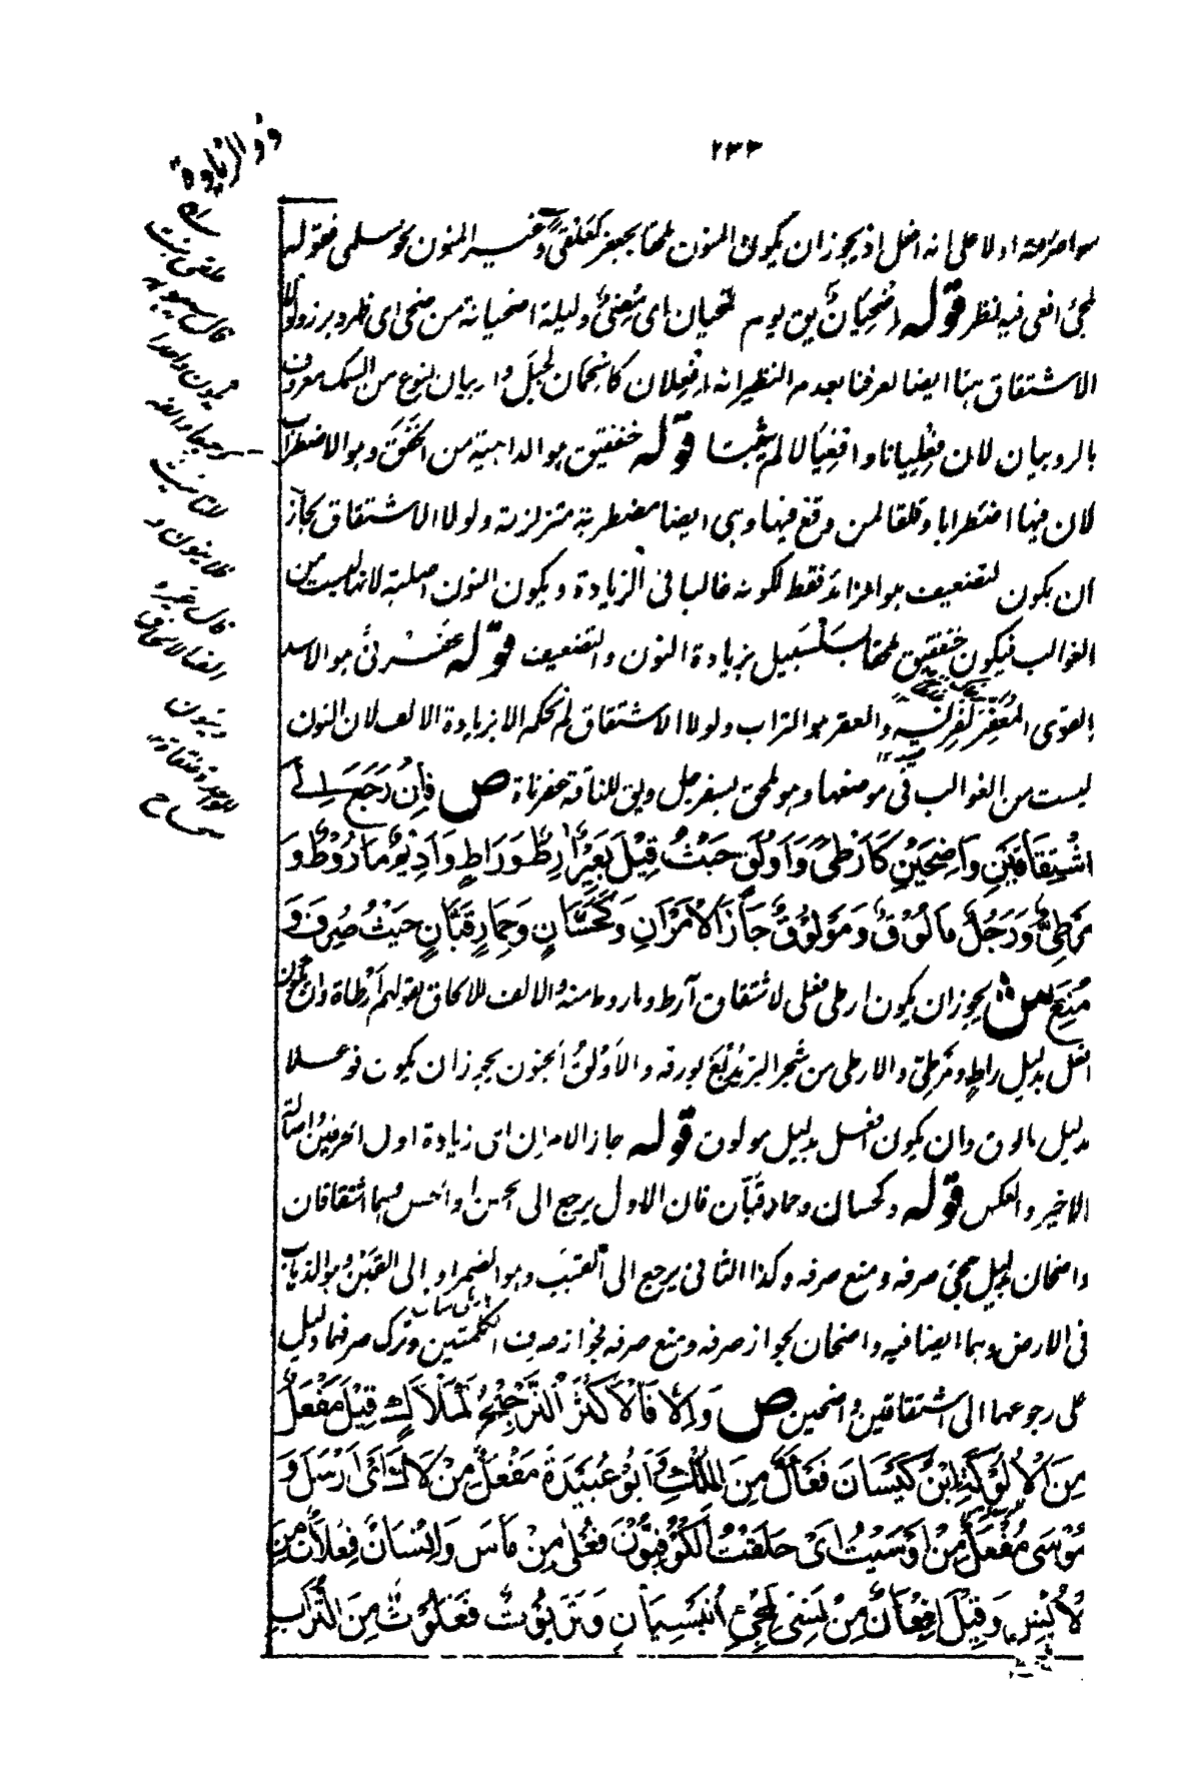 ٢٣٣
ذو الزيادة
ا ولا على انه افعل اذ يجوز ان يكون النون ملحقا بجعفر كعلقى وغيره النون نحو سلمى فقوله
لمجئ افعى فيه نظر قوله اضحيان يق يوم ضحيان اى مضئ وليلة اضحيانة من ضحى اى ظهر وبرز ولولا
الاشتقاق ههنا ايضا لعرفنا بعدم النظير انه افعلان كاسحمان لجبل واربيان لنوع من السمك معروف
بالروبيان لان فعليانا وافعيالا لم يثبتا قوله خنفقيق هو الداهية من الخفق وهو الاضطراب
لان فيها اضطرابا وقلقا لمن وقع فيها وهى ايضا مضطربة متزلزلة ولولا الاشتقاق لجاز
ان يكون التضعيف هو الزائد فقط لكونه غالبا فى الزيادة ويكون النون اصلية لانها ليست من
الغوالب فيكون خنفقيق ملحقا بسلسبيل بزيادة النون والتضعيف قوله عفرنى هو الاسد
القوى المعفر لفريسته والعفر هو التراب ولولا الاشتقاق لم نحكم الا بزيادة الالف لان النون
ليست من الغوالب فى موضعها وهو ملحق بسفرجل ويق للناقة عفرناة ص فَاِنْ رَجَعَ اِلىٰ
اشْتِقَاقَيْنِ وَاضِحَيْنِ كَاَرْطىً وَاَوْلَقٍ حَيْثُ قِيْلَ بَعِيْرٌ اٰرِطٌ وَرَاطٍ وَاَدِيْمٌ مَارُوْطٌ وَ
مَرْطِىٌّ وَرَجُلٌ مَاْلُوْقٌ وَمَوْلُوْقٌ جَازَ الْاَمْرَانِ وَكَحَسَّانٍ وَحِمَارِ قَبَّانٍ حَيْثُ صُرِفَ وَ
مُنِعَ ش يجوز ان يكون ارطى فعلى لاشتقاق آرط وماروط منه والالف للالحاق بقولهم ارطاة وان يكون
افعل بدليل راط ومرطى والارطى من شجر البر يدبغ بورقه والاولق الجنون يجوز ان يكون فوعلا
بدليل مالوق وان يكون افعل بدليل مولوق قوله جاز الامران اى زيادة اول الحرفين واصالة
الاخير والعكس قوله وكحسان وحمار قبان فان الاول يرجع الى الحسن او الحس وهما اشتقاقان
واضحان بدليل مجئ صرفه ومنع صرفه وكذا الثانى يرجع الى القبب وهو الضمر او الى القبن وهو الذهاب
فى الارض وهما ايضا فيه واضحان بجواز صرفه ومنع صرفه فجواز صرف الكلمتين وترك صرفهما دليل
على رجوعهما الى اشتقاقين واضحين ص وَاِلَّا فَالْاَكْثَرُ التَّرْجِيْحُ كَمَلْأَكٍ قِيْلَ مَفْعَلٌ
مِنَ الْاَلُوْكَةِ اِبْنُ كَيْسَانَ فَعْأَلٌ مِنَ الْمَلْكِ وَاَبُوْ عُبَيْدَةَ مَفْعَلٌ مِنْ لَأَكَ اَىْ اَرْسَلَ وَ
مُوْسىٰ مُفْعَلٌ مِنْ اَوْسَيْتُ اَىْ حَلَقْتُ اَلْكُوْفِيُّوْنَ فُعْلىٰ مِنْ مَاسَ وَاِنْسَانٌ فِعْلَانٌ مِنَ
الْاُنْسِ وَقِيْلَ اِفْعَانٌ مِنْ نَسِىَ لِمَجِئِ اُنَيْسِيَانٍ وَتَرَبُوْتٌ فَعَلُوْتٌ مِنَ التُّرَابِ
قال سيبويه
يكون واحدا
وجمعا والفه
للتانيث
فلا ينون و
قال غيره
الفه للالحاق
وينون
صحاح